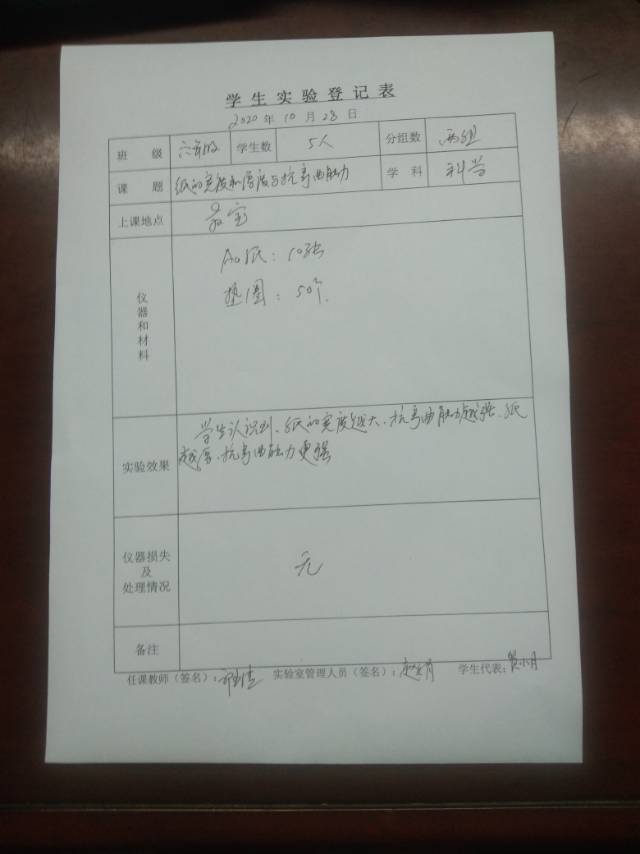 学生实验登记表
2020年10月28日
班 级 六年级 学生数 5人 分组数 两组
课 题 纸的宽度和厚度与抗弯曲能力 学 科 科学
上课地点 教室
仪器和材料
A0纸：10张
垫圈：50个.
实验效果
学生认识到、纸的宽度越大、抗弯曲能力越强、纸
越厚、抗弯曲能力更强
仪器损失
及
处理情况
无
备注
任课教师（签名）： 实验室管理人员（签名）： 学生代表：